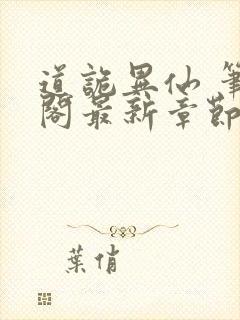 道詭異仙 筆
閣最新章節
葉俏